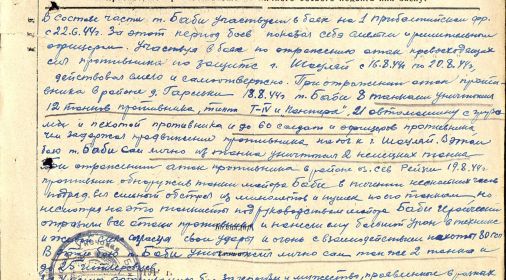 В составе части т. Баби участвует в боях на 1 прибалтийском фр.
с 22.6.44г. За этот период боев показал себя смелым и решительным
офицером. Участвуя в боях по отражению атак превосходящих
сил противника по защите г. Шауляй с 16.8.44г по 20.8.44г,
действовал смело и самоотверженно. При отражении атак против-
ника в районе д. 18.8.44г т. Баби 8 танками уничтожил
12 танков противника, типа "T-IV и Пантера", 21 автомашину с груза
ми и пехотой противника и до 60 солдат и офицеров противника,
чем задержал продвижение противника на юг к г. Шауляй. В этом
бою т. Баби сам лично из танка уничтожил 2 немецких танка
при отражении атак противника в районе сев 19.8.44г
противник обнаружив танки майора Баби в течении нескольких часов
подряд, вел сильный обстрел из минометов и пушек по его танкам, но
несмотря на это танкисты под руководством майора Баби героически
отразили все атаки противника и нанесли ему большой урон в технике
и свои удары и огонь с взаимодействии пехоты 80 гсп
В этом бою Баби уничтожил лично сам тоже 2 танка и
до 25 гитлеровцев.
и мужество, проявленное в рамках